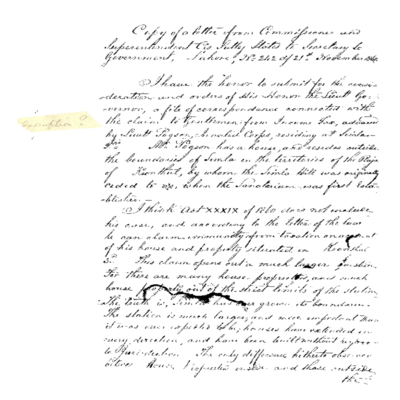 Copy of a letter from Commissioner and
Superintendent Cis Sutlej States to Secretary to
Government, Lahore, No 242 d/ 21st November 1864.
I have the honor to submit for the consi-
deration and orders of His Honor the Lieutt Go-
vernor, a file of correspondence connected with
the claim to exemption from Income Tax, advanced
by Lieutt Pogson, Invalid Corps, residing at Simla.
Exemption?
2nd Mr. Pogson has a house, and resides outside
the boundaries of Simla in the territories of the Raja
of Keonthul, by whom the Simla Hill was originally
ceded to us, when the Sanatarium was first Estab-
lished.
I think Act XXXIX of 1860 does not include
his case, and according to the letter of the law
he can claim immunity from taxation on account
of his house and property situated in Keonthul
This claim opens out a much larger question.
For there are many house proprietors, and much
house property out of the strict limits of the station
The truth is, Simla has grown its boundaries.
The station is much larger, and more important than
it was ever expected to be, houses have extended in
every direction, and have been built without regard
to Jurisdiction. The only difference hitherto observed
between House Proprietors inside and those outside
the